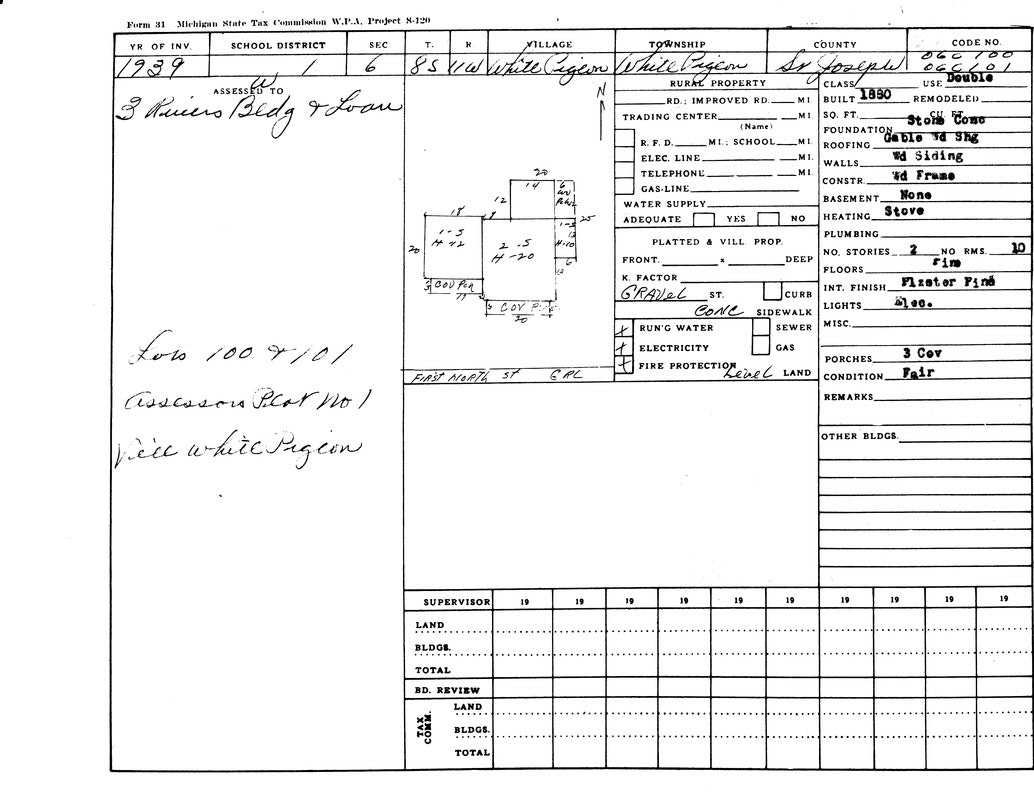 Form 31 Michigan State Tax Commission W.P.A. Project 8-120
YR OF INV. SCHOOL DISTRICT SEC T. R VILLAGE TOWNSHIP COUNTY CODE NO.
1939 W 1 6 8S 11W White Pigeon White Pigeon St Joseph 06C 100
06C 101
ASSESSED TO
3 Rivers Bldg & Loan
Lots 100 & 101
Assessors Plat No 1
Vill White Pigeon
N
20
14
6
12
18
25
20
1-S
H-12
2.S
H-20
1-S
12
H-10
6
COV Pch
COV P
20
FIRST NORTH ST GRL
RURAL PROPERTY
RD.; IMPROVED RD. MI.
TRADING CENTER MI.
(Name)
R. F. D. MI.; SCHOOL MI.
ELEC. LINE MI.
TELEPHONE MI.
GAS-LINE
WATER SUPPLY
ADEQUATE YES NO
PLATTED & VILL. PROP.
FRONT. x DEEP
K. FACTOR
GRAVEL ST. CURB
CONC SIDEWALK
RUN'G WATER SEWER
ELECTRICITY GAS
FIRE PROTECTION
Level LAND
CLASS USE Double
BUILT 1880 REMODELED
SQ. FT. CU. FT.
FOUNDATION Stone Conc
ROOFING Gable Wd Shg
WALLS Wd Siding
CONSTR. Wd Frame
BASEMENT None
HEATING Stove
PLUMBING
NO. STORIES 2 NO RMS. 10
FLOORS Pine
INT. FINISH Plaster Pine
LIGHTS Elec.
MISC.
PORCHES 3 Cov
CONDITION Fair
REMARKS
OTHER BLDGS.
SUPERVISOR 19 19 19 19 19 19 19 19 19 19
LAND
BLDGS.
TOTAL
BD. REVIEW
TAX COMM.
LAND
BLDGS.
TOTAL